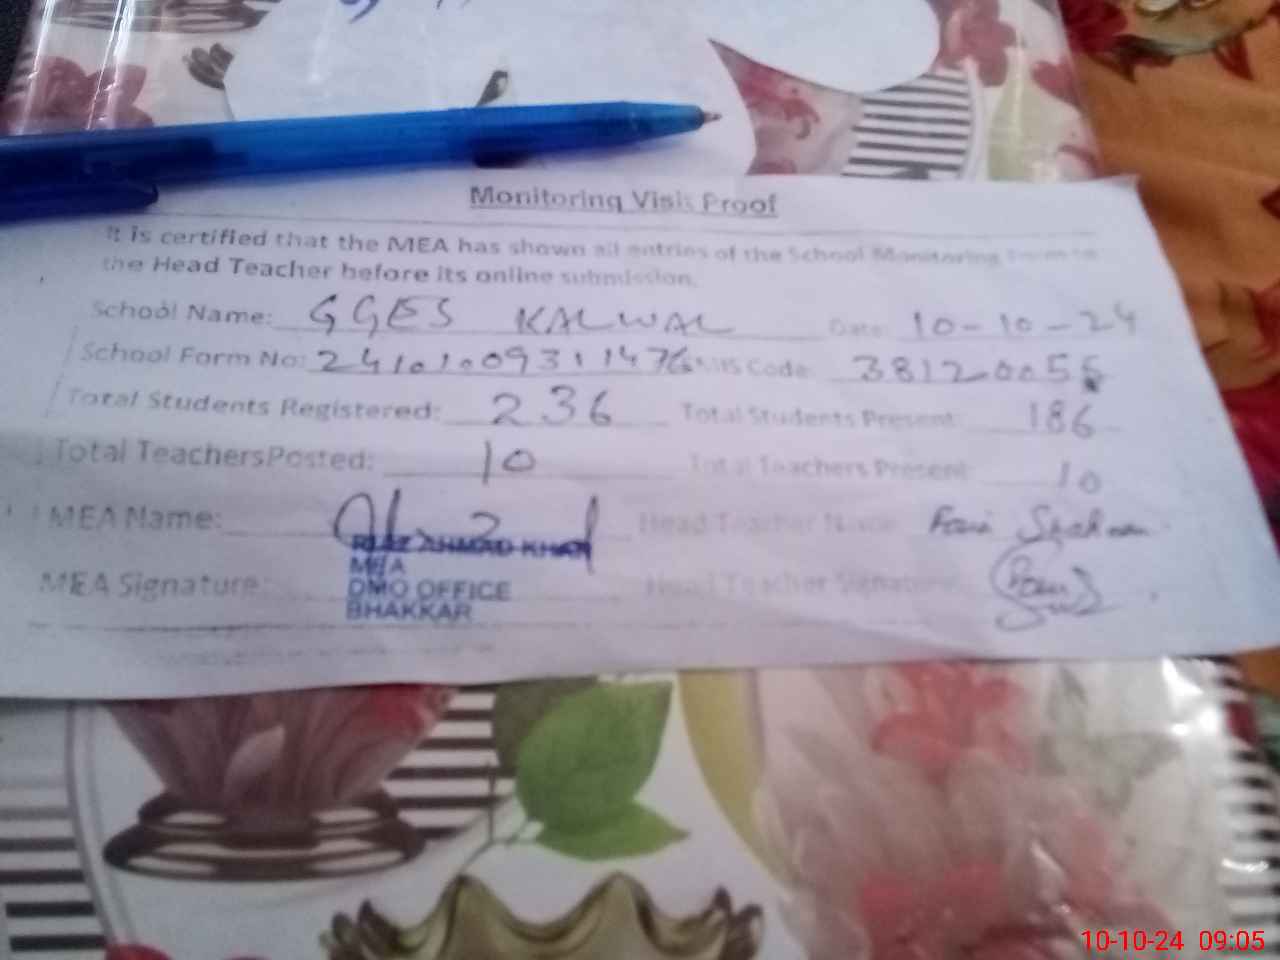 Monitoring Visit Proof
It is certified that the MEA has shown all entries of the School Monitoring Form to
the Head Teacher before its online submission.
School Name: GGES KALWAL Date: 10-10-24
School Form No: 2410100931 1476 EMIS Code: 38120055
Total Students Registered: 236 Total Students Present: 186
Total Teachers Posted: 10 Total Teachers Present: 10
MEA Name: Head Teacher Name:
RIAZ AHMAD KHAN
MEA
MEA Signature: DMO OFFICE Head Teacher Signature:
BHAKKAR
10-10-24 09:05